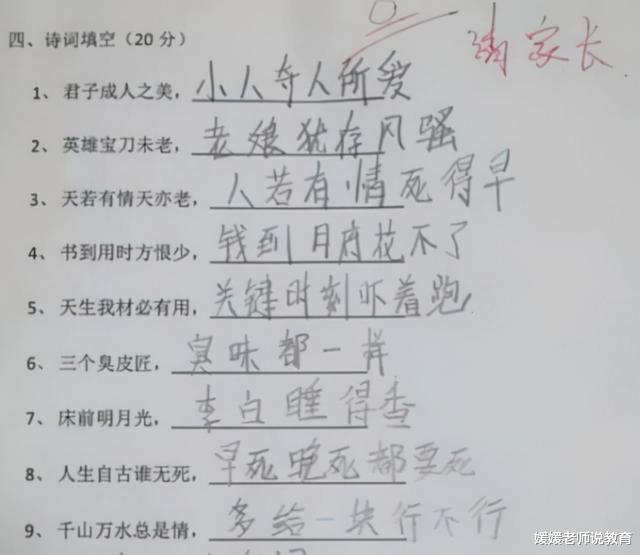 四、诗词填空（20分） 0 请家长
1、君子成人之美，小人夺人所爱
2、英雄宝刀未老，老娘犹存风骚
3、天若有情天亦老，人若有情死得早
4、书到用时方恨少，钱到月府花不了
5、天生我材必有用，关键时刻吓着跑
6、三个臭皮匠，臭味都一样
7、床前明月光，李白睡得香
8、人生自古谁无死，早死晚死都要死
9、千山万水总是情，多给一块行不行
媛媛老师说教育